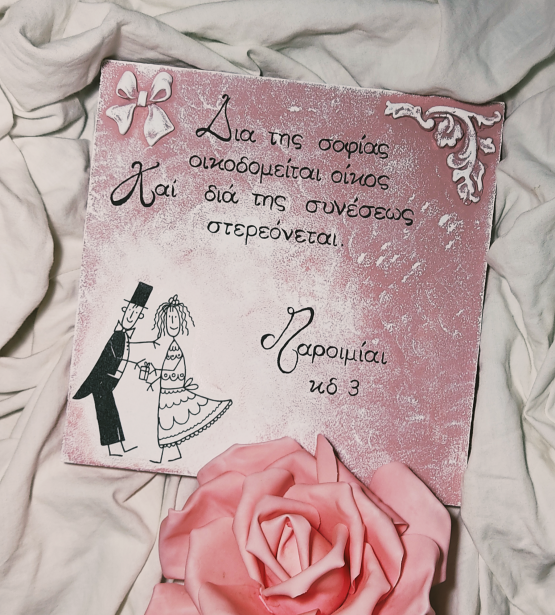 Δια της σοφίας
οικοδομείται οίκος
Καί διά της συνέσεως
στερεόνεται.
Παροιμίαι
κδ 3